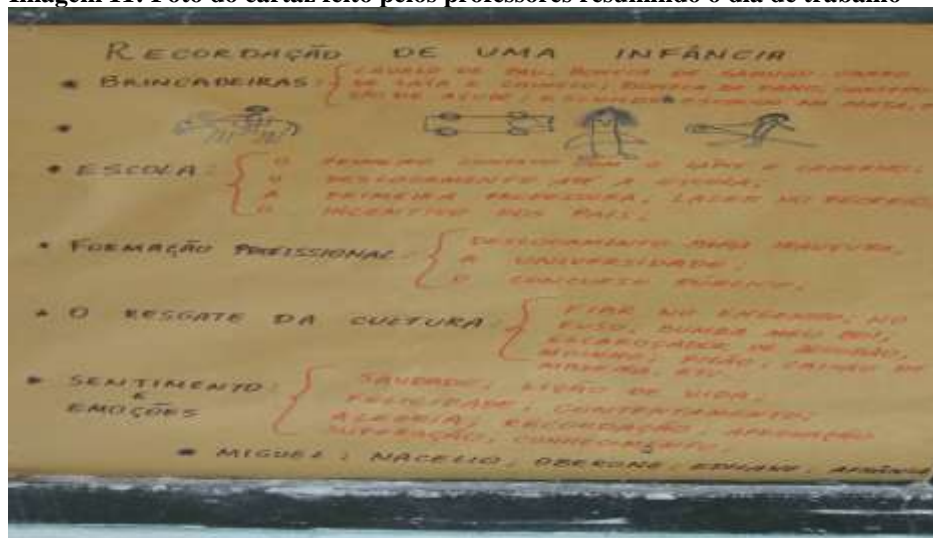 Imagem 11: Foto do cartaz feito pelos professores resumindo o dia de trabalho
RECORDAÇÃO DE UMA INFÂNCIA
• BRINCADEIRAS: CAVALO DE PAU, BONECA DE SABUGO, CARRO
DE LATA E CHINELO, BONECA DE PANO,
NA MATA,
• ESCOLA: O PRIMEIRO CONTATO COM O LÁPIS E CADERNO;
O DESLOCAMENTO ATÉ A ESCOLA;
A PRIMEIRA PROFESSORA, LAZER NO RECREIO,
O INCENTIVO DOS PAIS;
• FORMAÇÃO PROFISSIONAL: DESLOCAMENTO
A UNIVERSIDADE;
O CONCURSO PÚBLICO,
• O RESGATE DA CULTURA: FIAR NO ENGENHO, NO
FUSO, BUMBA MEU BOI,
ESCAROÇADOR DE ALGODÃO,
MOINHO, PILÃO, CAIXÃO DE
MADEIRA, ETC
• SENTIMENTO E EMOÇÕES: SAUDADE, LIÇÃO DE VIDA,
FELICIDADE, CONTENTAMENTO,
ALEGRIA, RECORDAÇÃO,
INTERAÇÃO, CONHECIMENTO.
• MIGUEL, NACELIO, OBERONE,